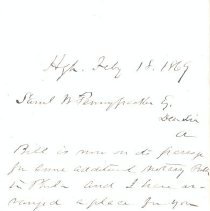 Hgh. Feby 18. 1869
Saml W Pennypacker Esq.
Dear Sir
A
Bill is now on its passage
for some additional Notary Pub
in Phila and I have ar-
ranged a place for you